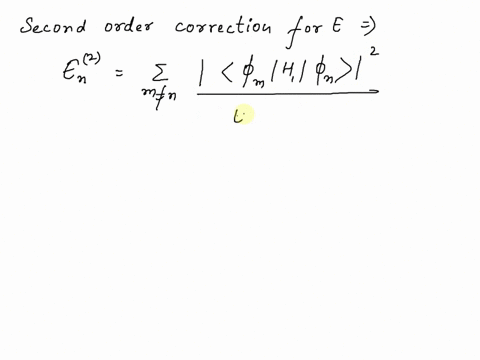 Second order correction for E ⇒
E_n^(2) = Σ_{m≠n} |<ϕ_m|H_1|ϕ_n>|^2